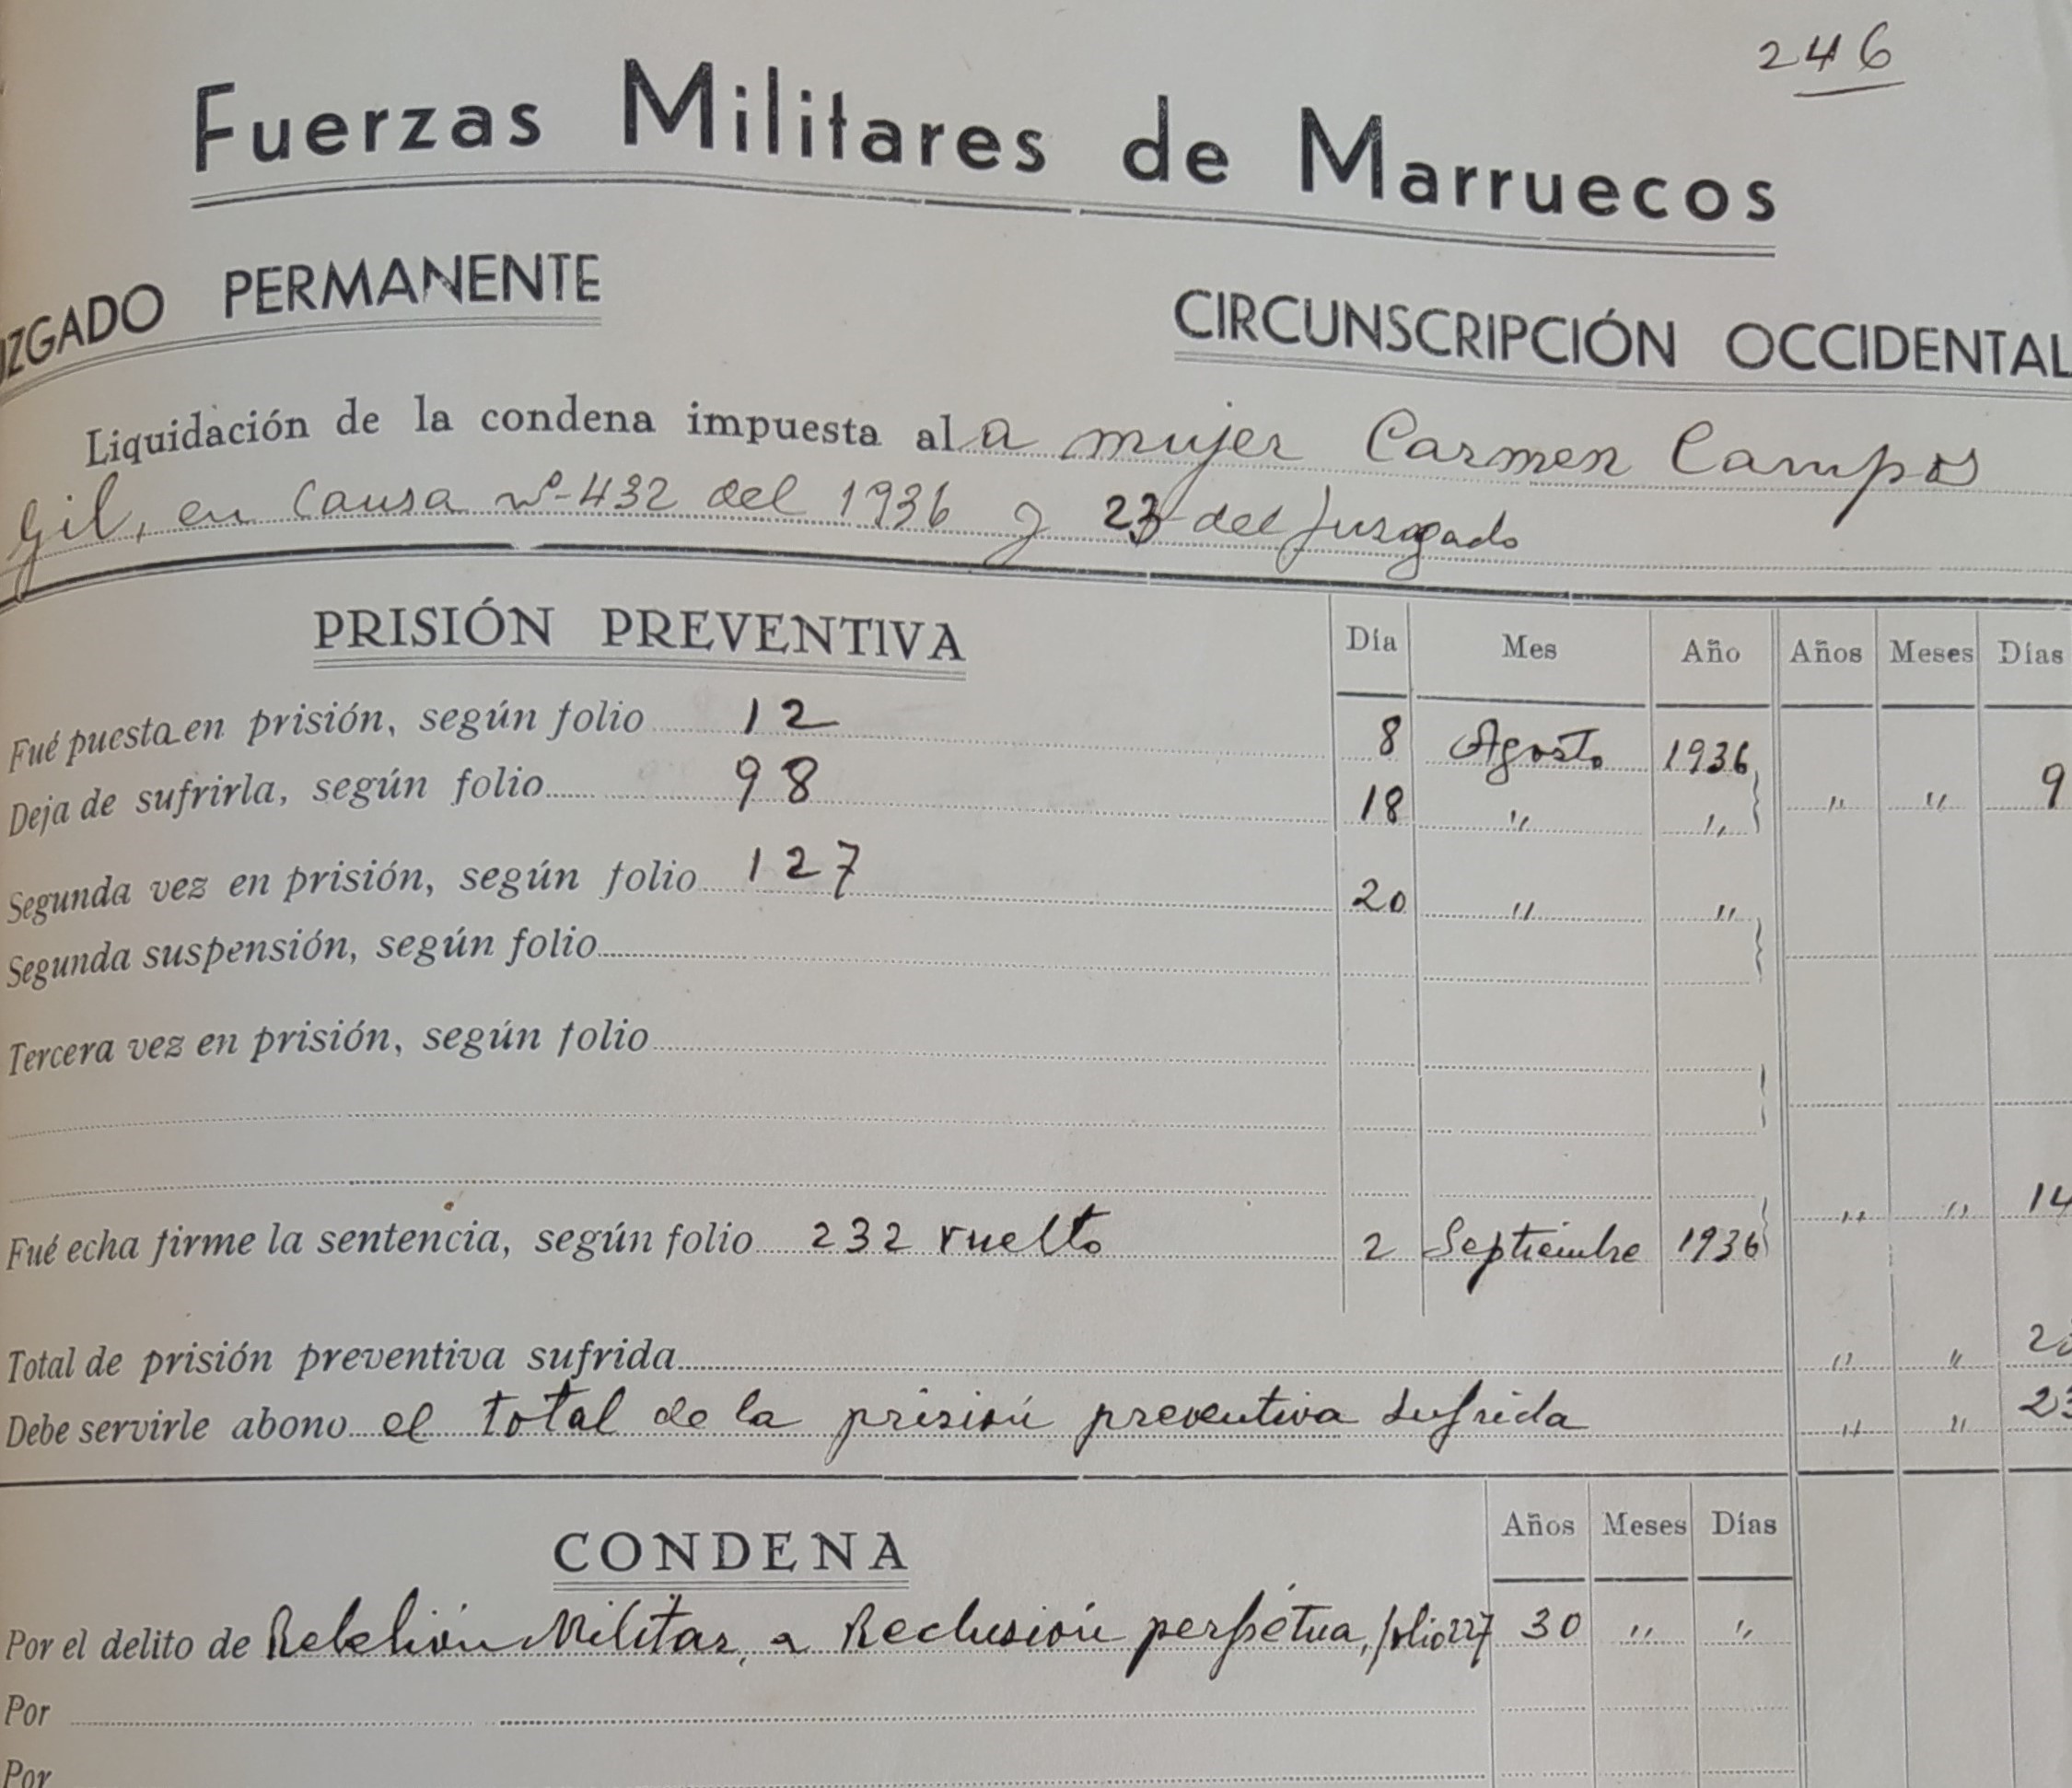 246
Fuerzas Militares de Marruecos
UZGADO PERMANENTE
CIRCUNSCRIPCIÓN OCCIDENTAL
Liquidación de la condena impuesta al a mujer Carmen Campos
Gil, en Causa nº-432 del 1936 y 23 del Juzgado
PRISIÓN PREVENTIVA Día Mes Año Años Meses Días
Fué puesta en prisión, según folio 12 8 Agosto 1936
Deja de sufrirla, según folio 98 18 " " " " 9
Segunda vez en prisión, según folio 127 20 " "
Segunda suspensión, según folio
Tercera vez en prisión, según folio
" " 14
Fué echa firme la sentencia, según folio 232 vuelto 2 Septiembre 1936
Total de prisión preventiva sufrida " " 2
Debe servirle abono el total de la prisión preventiva sufrida " " 23
CONDENA Años Meses Días
Por el delito de Rebelión Militar, a Reclusión perpétua, folio 227 30 " "
Por
Por